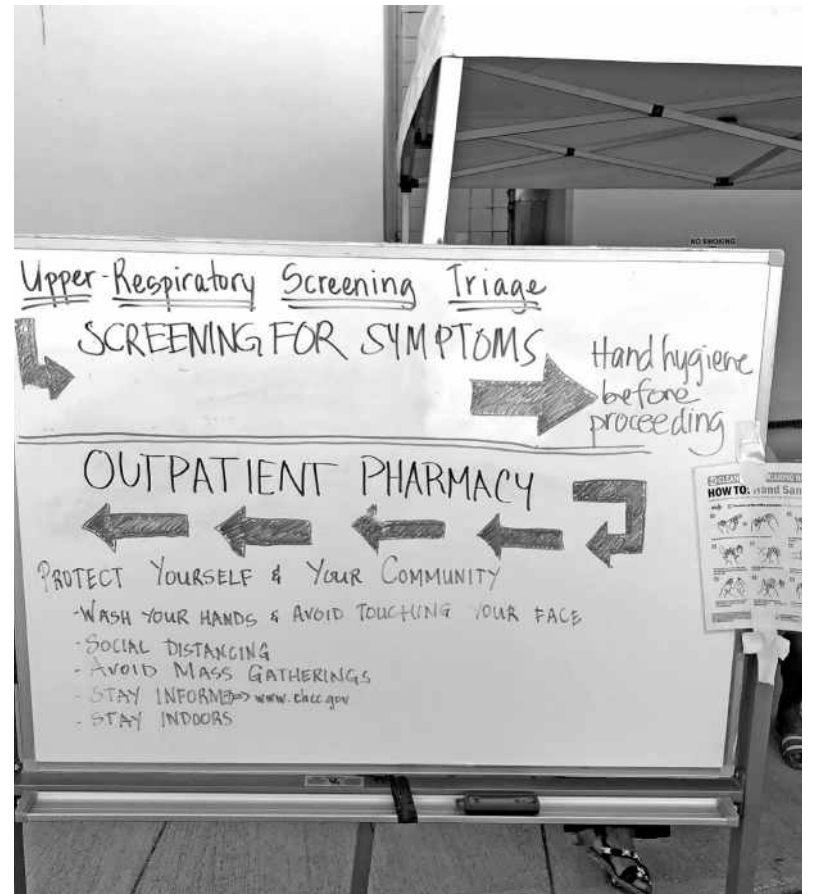 NO SMOKING
Upper-Respiratory Screening Triage
SCREENING FOR SYMPTOMS
Hand hygiene
before
proceeding
OUTPATIENT PHARMACY
PROTECT YOURSELF & YOUR COMMUNITY
-WASH YOUR HANDS & AVOID TOUCHING YOUR FACE
-SOCIAL DISTANCING
-AVOID MASS GATHERINGS
-STAY INFORMED www.chcc.gov
-STAY INDOORS
CLEAN
HOW TO: Hand San